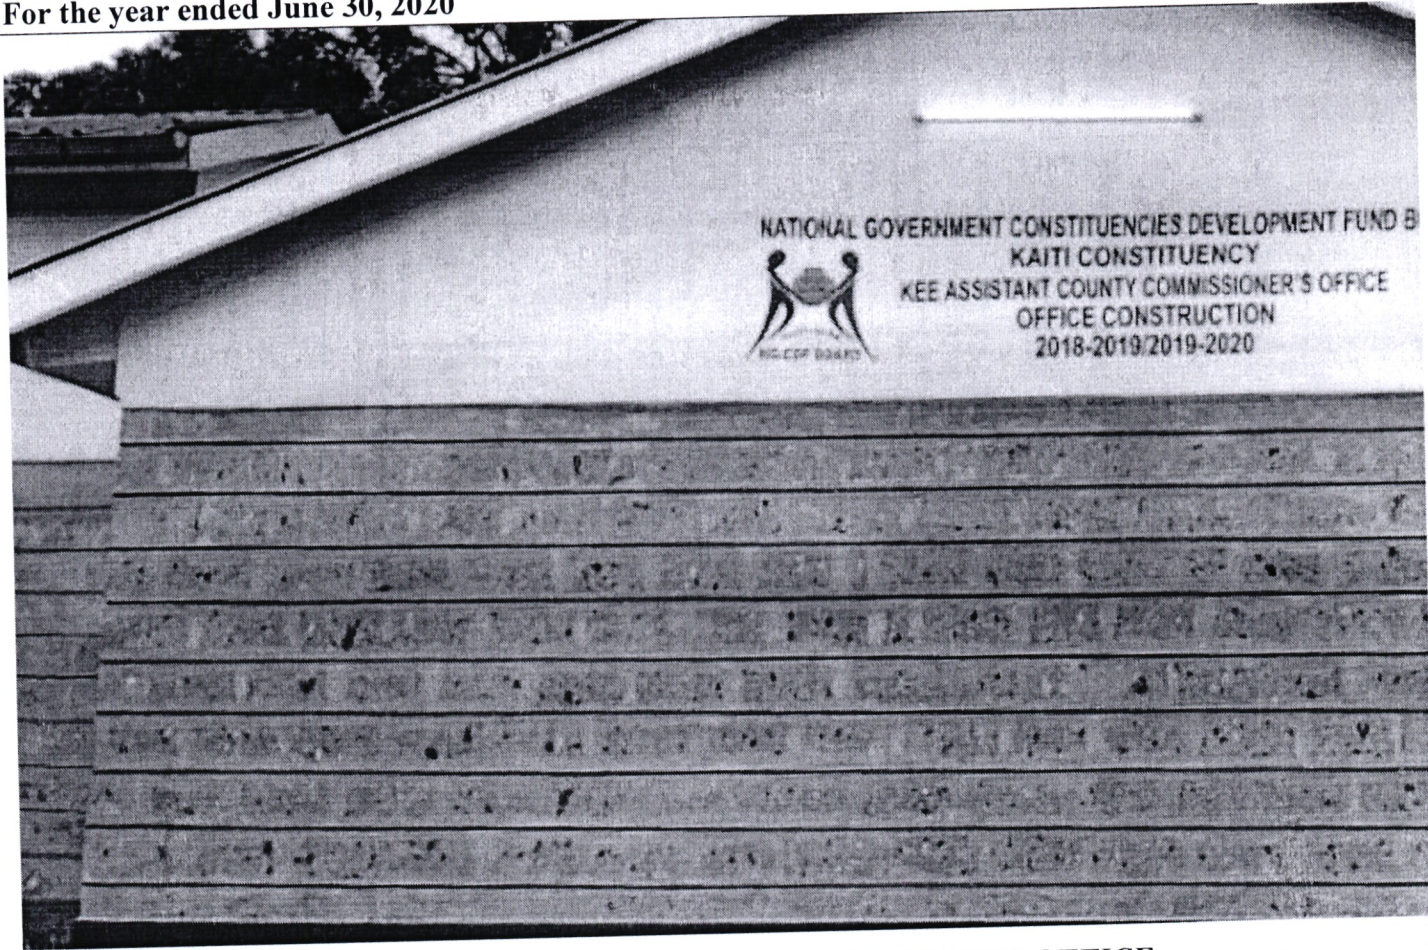 For the year ended June 30, 2020
NATIONAL GOVERNMENT CONSTITUENCIES DEVELOPMENT FUND B
KAITI CONSTITUENCY
KEE ASSISTANT COUNTY COMMISSIONER'S OFFICE
OFFICE CONSTRUCTION
2018-2019/2019-2020
NG-CDF BOARD